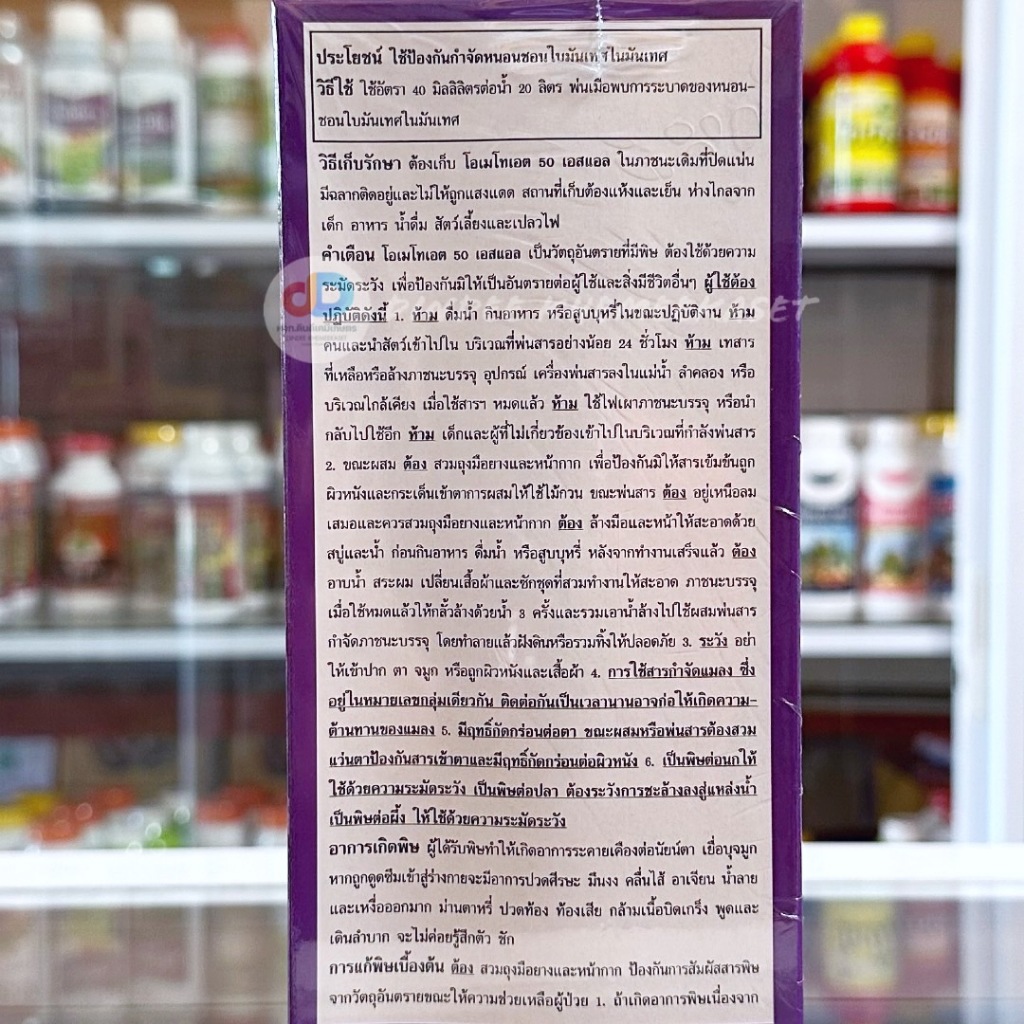 ประโยชน์ ใช้ป้องกันกำจัดหนอนชอนใบมันเทศในมันเทศ
วิธีใช้ ใช้อัตรา 40 มิลลิลิตรต่อน้ำ 20 ลิตร พ่นเมื่อพบการระบาดของหนอน-
ชอนใบมันเทศในมันเทศ
วิธีเก็บรักษา ต้องเก็บ โอเมโทเอต 50 เอสแอล ในภาชนะเดิมที่ปิดแน่น
มีฉลากติดอยู่และไม่ให้ถูกแสงแดด สถานที่เก็บต้องแห้งและเย็น ห่างไกลจาก
เด็ก อาหาร น้ำดื่ม สัตว์เลี้ยงและเปลวไฟ
คำเตือน โอเมโทเอต 50 เอสแอล เป็นวัตถุอันตรายที่มีพิษ ต้องใช้ด้วยความ
ระมัดระวัง เพื่อป้องกันมิให้เป็นอันตรายต่อผู้ใช้และสิ่งมีชีวิตอื่นๆ ผู้ใช้ต้อง
ปฏิบัติดังนี้ 1. ห้าม ดื่มน้ำ กินอาหาร หรือสูบบุหรี่ในขณะปฏิบัติงาน ห้าม
คนและนำสัตว์เข้าไปใน บริเวณที่พ่นสารอย่างน้อย 24 ชั่วโมง ห้าม เทสาร
ที่เหลือหรือล้างภาชนะบรรจุ อุปกรณ์ เครื่องพ่นสารลงในแม่น้ำ ลำคลอง หรือ
บริเวณใกล้เคียง เมื่อใช้สารฯ หมดแล้ว ห้าม ใช้ไฟเผาภาชนะบรรจุ หรือนำ
กลับไปใช้อีก ห้าม เด็กและผู้ที่ไม่เกี่ยวข้องเข้าไปในบริเวณที่กำลังพ่นสาร
2. ขณะผสม ต้อง สวมถุงมือยางและหน้ากาก เพื่อป้องกันมิให้สารเข้มข้นถูก
ผิวหนังและกระเด็นเข้าตาการผสมให้ใช้ไม้กวน ขณะพ่นสาร ต้อง อยู่เหนือลม
เสมอและควรสวมถุงมือยางและหน้ากาก ต้อง ล้างมือและหน้าให้สะอาดด้วย
สบู่และน้ำ ก่อนกินอาหาร ดื่มน้ำ หรือสูบบุหรี่ หลังจากทำงานเสร็จแล้ว ต้อง
อาบน้ำ สระผม เปลี่ยนเสื้อผ้าและซักชุดที่สวมทำงานให้สะอาด ภาชนะบรรจุ
เมื่อใช้หมดแล้วให้กลั้วล้างด้วยน้ำ 3 ครั้งและรวมเอาน้ำล้างไปใช้ผสมพ่นสาร
กำจัดภาชนะบรรจุ โดยทำลายแล้วฝังดินหรือรวมทิ้งให้ปลอดภัย 3. ระวัง อย่า
ให้เข้าปาก ตา จมูก หรือถูกผิวหนังและเสื้อผ้า 4. การใช้สารกำจัดแมลง ซึ่ง
อยู่ในหมายเลขกลุ่มเดียวกัน ติดต่อกันเป็นเวลานานอาจก่อให้เกิดความ-
ต้านทานของแมลง 5. มีฤทธิ์กัดกร่อนต่อตา ขณะผสมหรือพ่นสารต้องสวม
แว่นตาป้องกันสารเข้าตาและมีฤทธิ์กัดกร่อนต่อผิวหนัง 6. เป็นพิษต่อนกให้
ใช้ด้วยความระมัดระวัง เป็นพิษต่อปลา ต้องระวังการชะล้างลงสู่แหล่งน้ำ
เป็นพิษต่อผึ้ง ให้ใช้ด้วยความระมัดระวัง
อาการเกิดพิษ ผู้ได้รับพิษทำให้เกิดอาการระคายเคืองต่อนัยน์ตา เยื่อบุจมูก
หากถูกดูดซึมเข้าสู่ร่างกายจะมีอาการปวดศีรษะ มึนงง คลื่นไส้ อาเจียน น้ำลาย
และเหงื่อออกมาก ม่านตาหรี่ ปวดท้อง ท้องเสีย กล้ามเนื้อบิดเกร็ง พูดและ
เดินลำบาก จะไม่ค่อยรู้สึกตัว ชัก
การแก้พิษเบื้องต้น ต้อง สวมถุงมือยางและหน้ากาก ป้องกันการสัมผัสสารพิษ
จากวัตถุอันตรายขณะให้ความช่วยเหลือผู้ป่วย 1. ถ้าเกิดอาการพิษเนื่องจาก